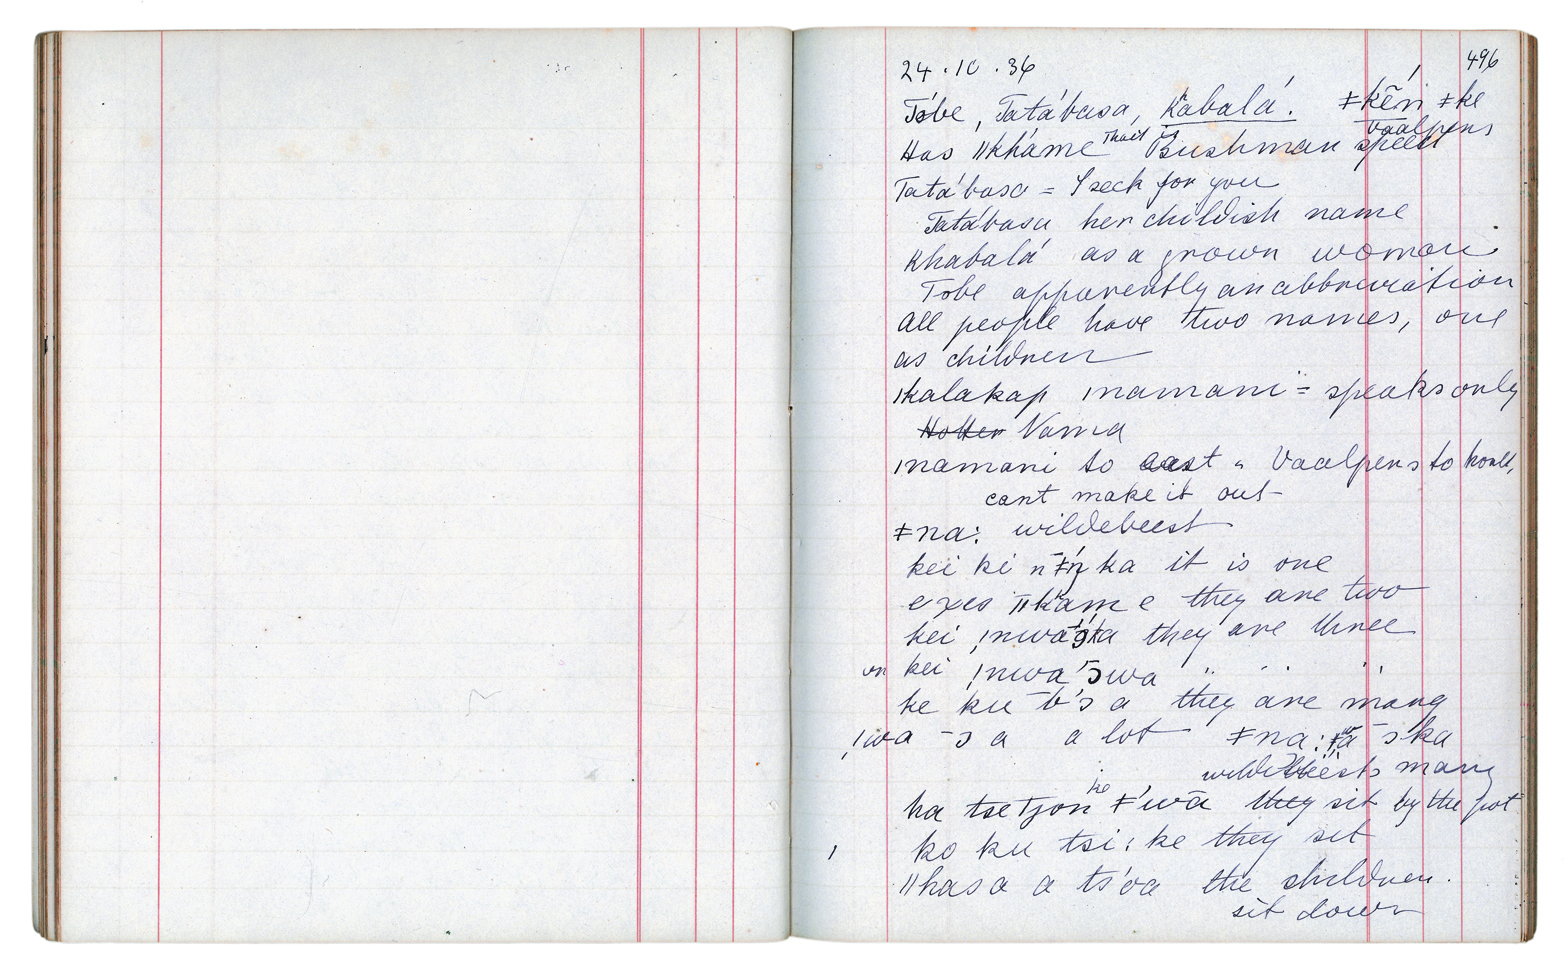 24.10.36
496
Tobe, Tatábasa, Kʰabalá. ǂkẽ́n ǂke
Vaalpens
Has ǁkháme That is Bushman speech
Tatá'basa = I seek for you
Tatábasa her childish name
Khabalá as a grown woman
Tobe apparently an abbreviation
All people have two names, one
as children
ǀkalakap ǀnamani = speaks only
Hotten Nama
ǀnamani to east " Vaalpens to
cant make it out
ǂna: wildebeest
kei ki ka it is one
exes ǁkʰam e they are two
kei they are three
or kei ǃnwa'ɔwa " " "
ke ku ɔ a they are many
ǃwa ‾ɔ a a lot ǂna: ɔka
wildebeests many
ke
ha tsetjon ǂ'wā they sit by the pot
ko ku tsi: ke they sit
ǁhasa a ts'oa the children
sit down